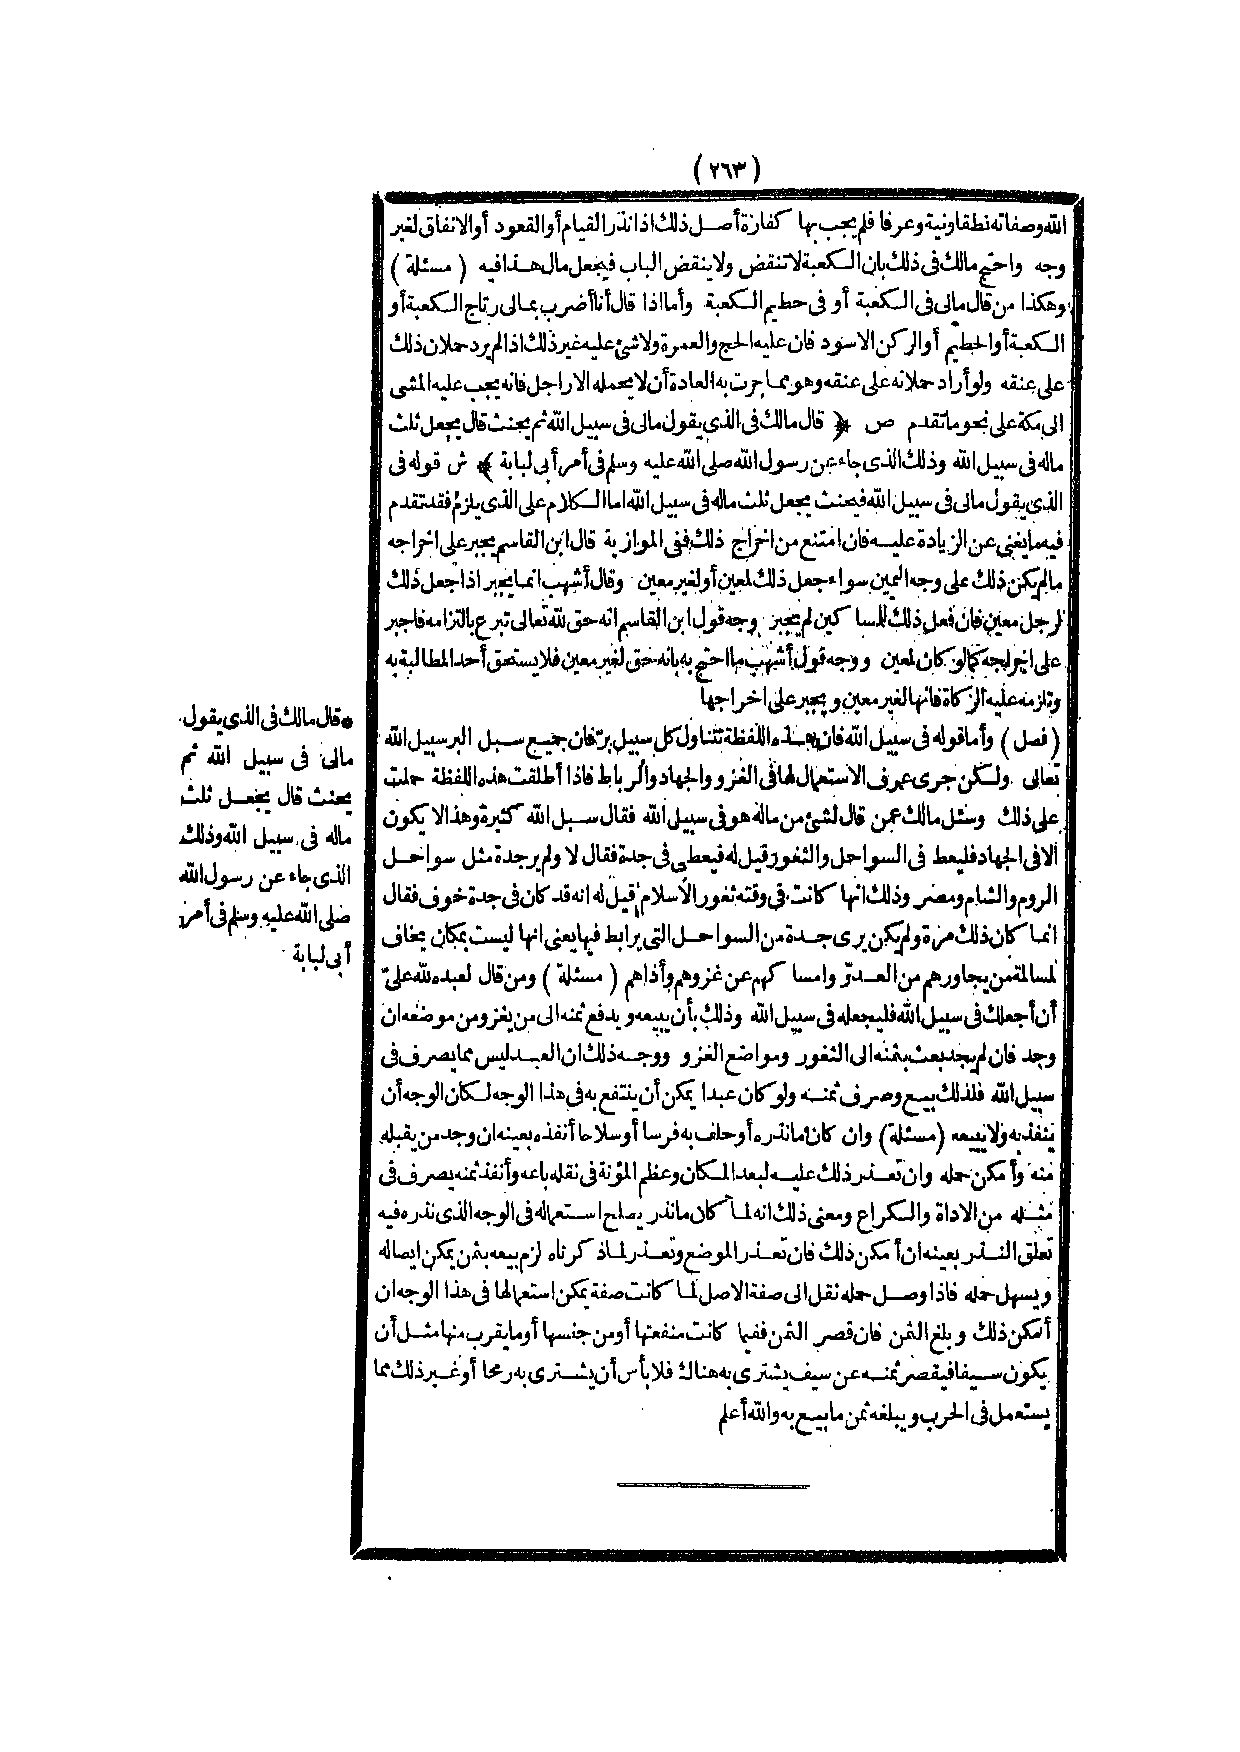 (٢٦٣)
الله وصفاته نطقا ونية وعرفا فلم يجب بها كفارة أصل ذلك اذا نذر القيام أو القعود أو الانفاق لغير
وجه واحتج مالك فى ذلك بان الكعبة لا تنقض ولا ينقض الباب فيجعل مال هذا فيه ( مسئلة )
وهكذا من قال مالى فى الكعبة أو فى حطيم الكعبة وأما اذا قال أنا أضرب بمالى رتاج الكعبة أو
الكعبة أو الحطيم أو الركن الاسود فان عليه الحج والعمرة ولا شئ عليه غير ذلك اذا لم يرد حملان ذلك
على عنقه ولو أراد حملانه على عنقه وهو مما جرت به العادة أن لا يحمله الا راجل فانه يجب عليه المشى
الى مكة على نحو ما تقدم ص ﴿ قال مالك فى الذى يقول مالى فى سبيل الله ثم يحنث قال يجعل ثلث
ماله فى سبيل الله وذلك الذى جاء عن رسول الله صلى الله عليه وسلم فى أمر أبى لبابة ﴾ ش قوله فى
الذى يقول مالى فى سبيل الله فيحنث يجعل ثلث ماله فى سبيل الله اما الكلام على الذى يلزم فقد تقدم
فيه ما يغنى عن الزيادة عليه فان امتنع من اخراج ذلك ففى الموازية قال ابن القاسم يجبر على اخراجه
ما لم يكن ذلك على وجه اليمين سواء جعل ذلك لمعين أو لغير معين وقال أشهب انما يجبر اذا جعل ذلك
لرجل معين فان فعل ذلك للمساكين لم يجبر وجه قول ابن القاسم انه حق لله تعالى تبرع بالتزامه فاجبر
على اخراجه كما لو كان لمعين ووجه قول أشهب ما احتج به بانه حق لغير معين فلا يستحق أحد المطالبة به
وتلزمه عليه الزكاة فانها لغير معين ويجبر على اخراجها
(فصل) وأما قوله فى سبيل الله فان هذه اللفظة تتناول كل سبيل بر فان جميع سبل البر سبيل الله
تعالى ولكن جرى عرف الاستعمال لها فى الغزو والجهاد والرباط فاذا أطلقت هذه اللفظة حملت
على ذلك وسئل مالك عمن قال لشئ من ماله هو فى سبيل الله فقال سبل الله كثيرة وهذا لا يكون
الا فى الجهاد فليعط فى السواحل والثغور قيل له فيعطى فى جدة فقال لا ولم ير جدة مثل سواحل
الروم والشام ومصر وذلك انها كانت فى وقته ثغور الاسلام قيل له انه قد كان فى جدة خوف فقال
انما كان ذلك مرة ولم يكن يرى جدة من السواحل التى يرابط فيها يعنى انها ليست بمكان يخاف
لمسالمة من يجاورهم من العدو وامساكهم عن غزوهم وأذاهم ( مسئلة ) ومن قال لعبده لله علىّ
أن أجعلك فى سبيل الله فليجعله فى سبيل الله وذلك بأن يبيعه ويدفع ثمنه الى من يغزو من موضعه ان
وجد فان لم يجد بعث بثمنه الى الثغور ومواضع الغزو ووجه ذلك ان العبد ليس مما يصرف فى
سبيل الله فلذلك بيع وصرف ثمنه ولو كان عبدا يمكن أن ينتفع به فى هذا الوجه لكان الوجه أن
ينفذ به ولا يبيعه (مسئلة) وان كان ما نذره أو حلف به فرسا أو سلاحا أنفذه بعينه ان وجد من يقبله
منه وأمكن حمله وان تعذر ذلك عليه لبعد المكان وعظم المؤنة فى نقله باعه وأنفذ ثمنه يصرف فى
مثله من الاداة والكراع ومعنى ذلك انه لما كان ما نذر يصلح استعماله فى الوجه الذى نذره فيه
تعلق النذر بعينه ان أمكن ذلك فان تعذر الموضع وتعذر لما ذكرناه لزم بيعه بثمن يمكن ايصاله
ويسهل حمله فاذا وصل حمله نقل الى صفة الاصل لما كانت صفة يمكن استعمالها فى هذا الوجه ان
أمكن ذلك وبلغ الثمن فان قصر الثمن ففيما كانت منفعتها أو من جنسها أو ما يقرب منها مثل أن
يكون سيفا فيقصر ثمنه عن سيف يشترى به هناك فلا بأس أن يشترى به رمحا أو غير ذلك مما
يستعمل فى الحرب ويبلغه ثمن ما بيع به والله أعلم
* قال مالك فى الذى يقول
مالى فى سبيل الله ثم
يحنث قال يجعل ثلث
ماله فى سبيل الله وذلك
الذى جاء عن رسول الله
صلى الله عليه وسلم فى أمر
أبى لبابة